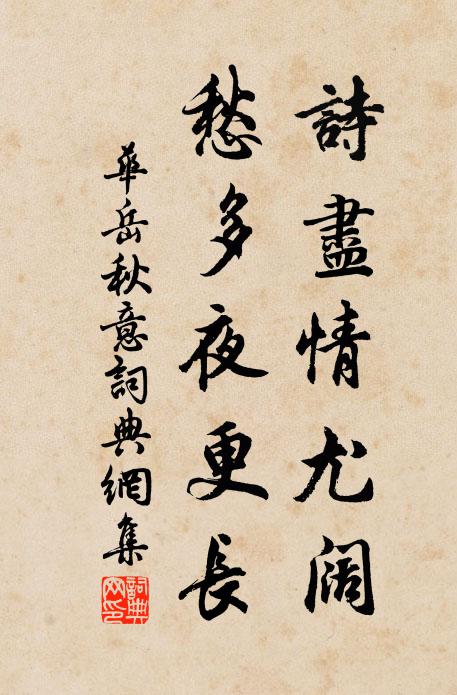 詩盡情尤闊
愁多夜更長
華岳秋意詞典網集
詞典
文印